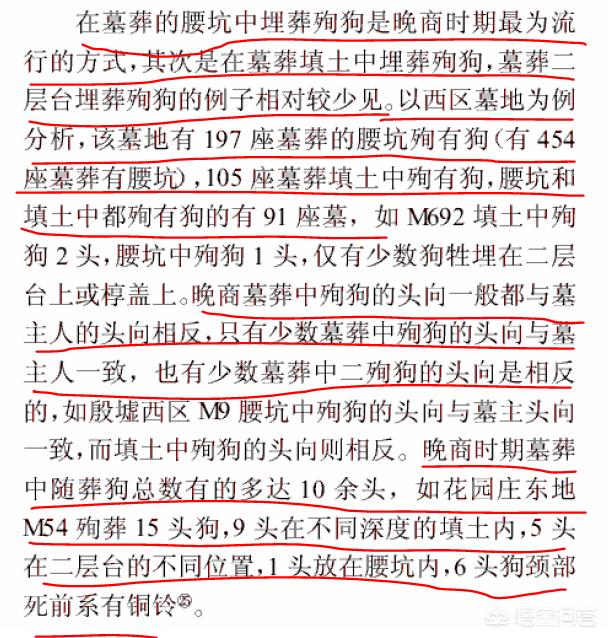 在墓葬的腰坑中埋葬殉狗是晚商时期最为流
行的方式,其次是在墓葬填土中埋葬殉狗,墓葬二
层台埋葬殉狗的例子相对较少见。以西区墓地为例
分析,该墓地有 197 座墓葬的腰坑殉有狗(有 454
座墓葬有腰坑),105 座墓葬填土中殉有狗,腰坑和
填土中都殉有狗的有 91 座墓，如 M692 填土中殉
狗 2 头,腰坑中殉狗 1 头,仅有少数狗牲埋在二层
台上或椁盖上。晚商墓葬中殉狗的头向一般都与墓
主人的头向相反,只有少数墓葬中殉狗的头向与墓
主人一致，也有少数墓葬中二殉狗的头向是相反
的,如殷墟西区 M9 腰坑中殉狗的头向与墓主头向
一致,而填土中殉狗的头向则相反。晚商时期墓葬
中随葬狗总数有的多达 10 余头，如花园庄东地
M54 殉葬 15 头狗,9 头在不同深度的填土内,5 头
在二层台的不同位置,1 头放在腰坑内,6 头狗颈部
死前系有铜铃㉕。
悟空问答